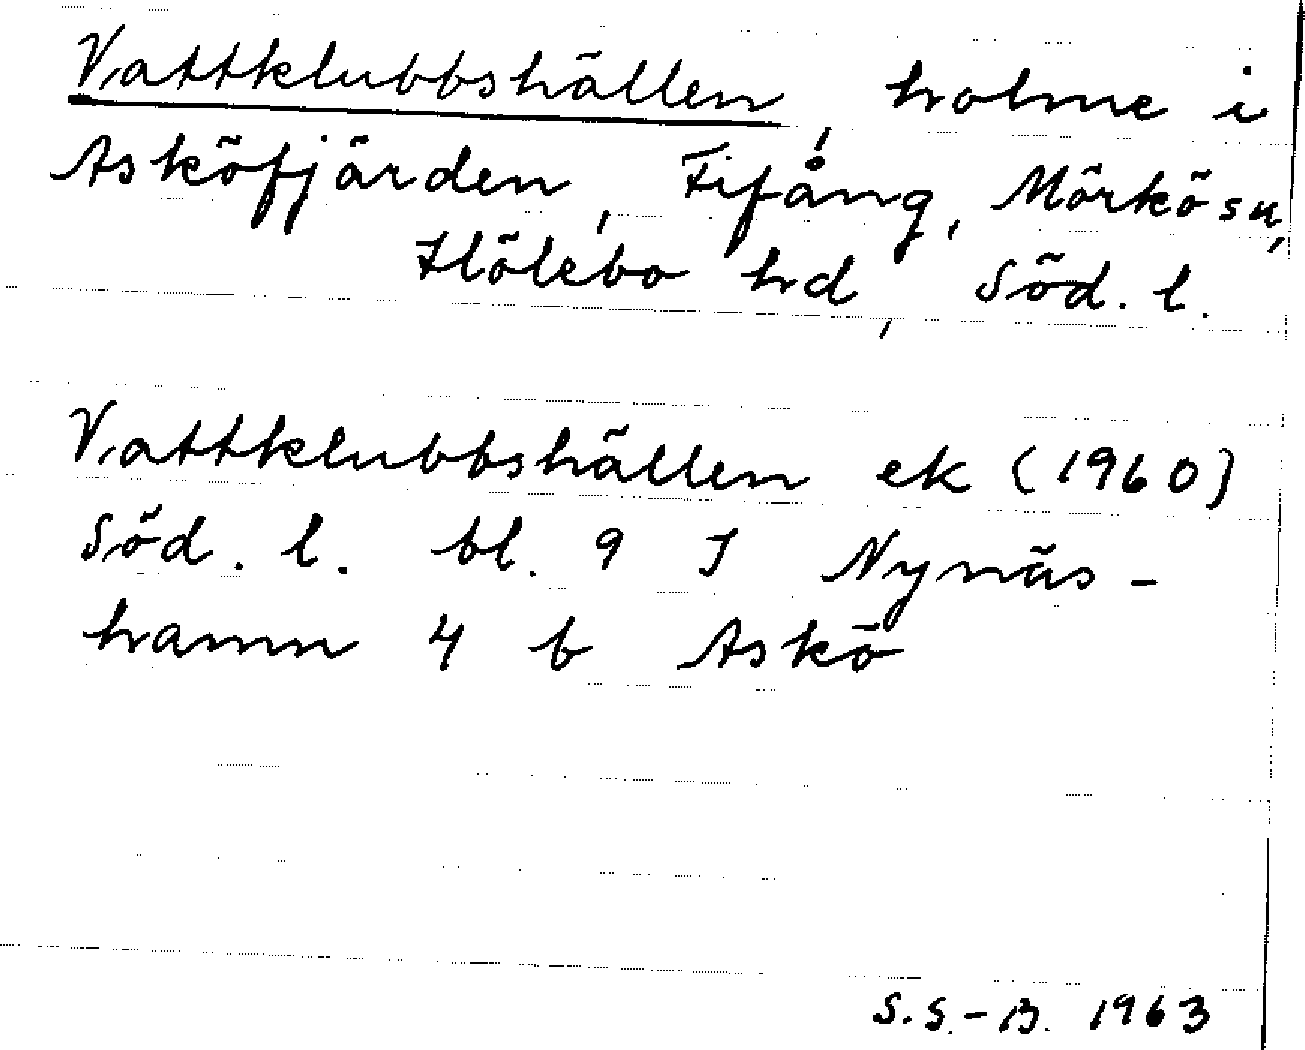 Vattklubbshällen, holme i
Asköfjärden, Fifång, Mörkö sn,
Hölebo hd, Söd. l.
Vattklubbshällen ek (1960)
Söd. l. bl. 9 J Nynäs-
hamn 4 b Askö
S.S.-B. 1963